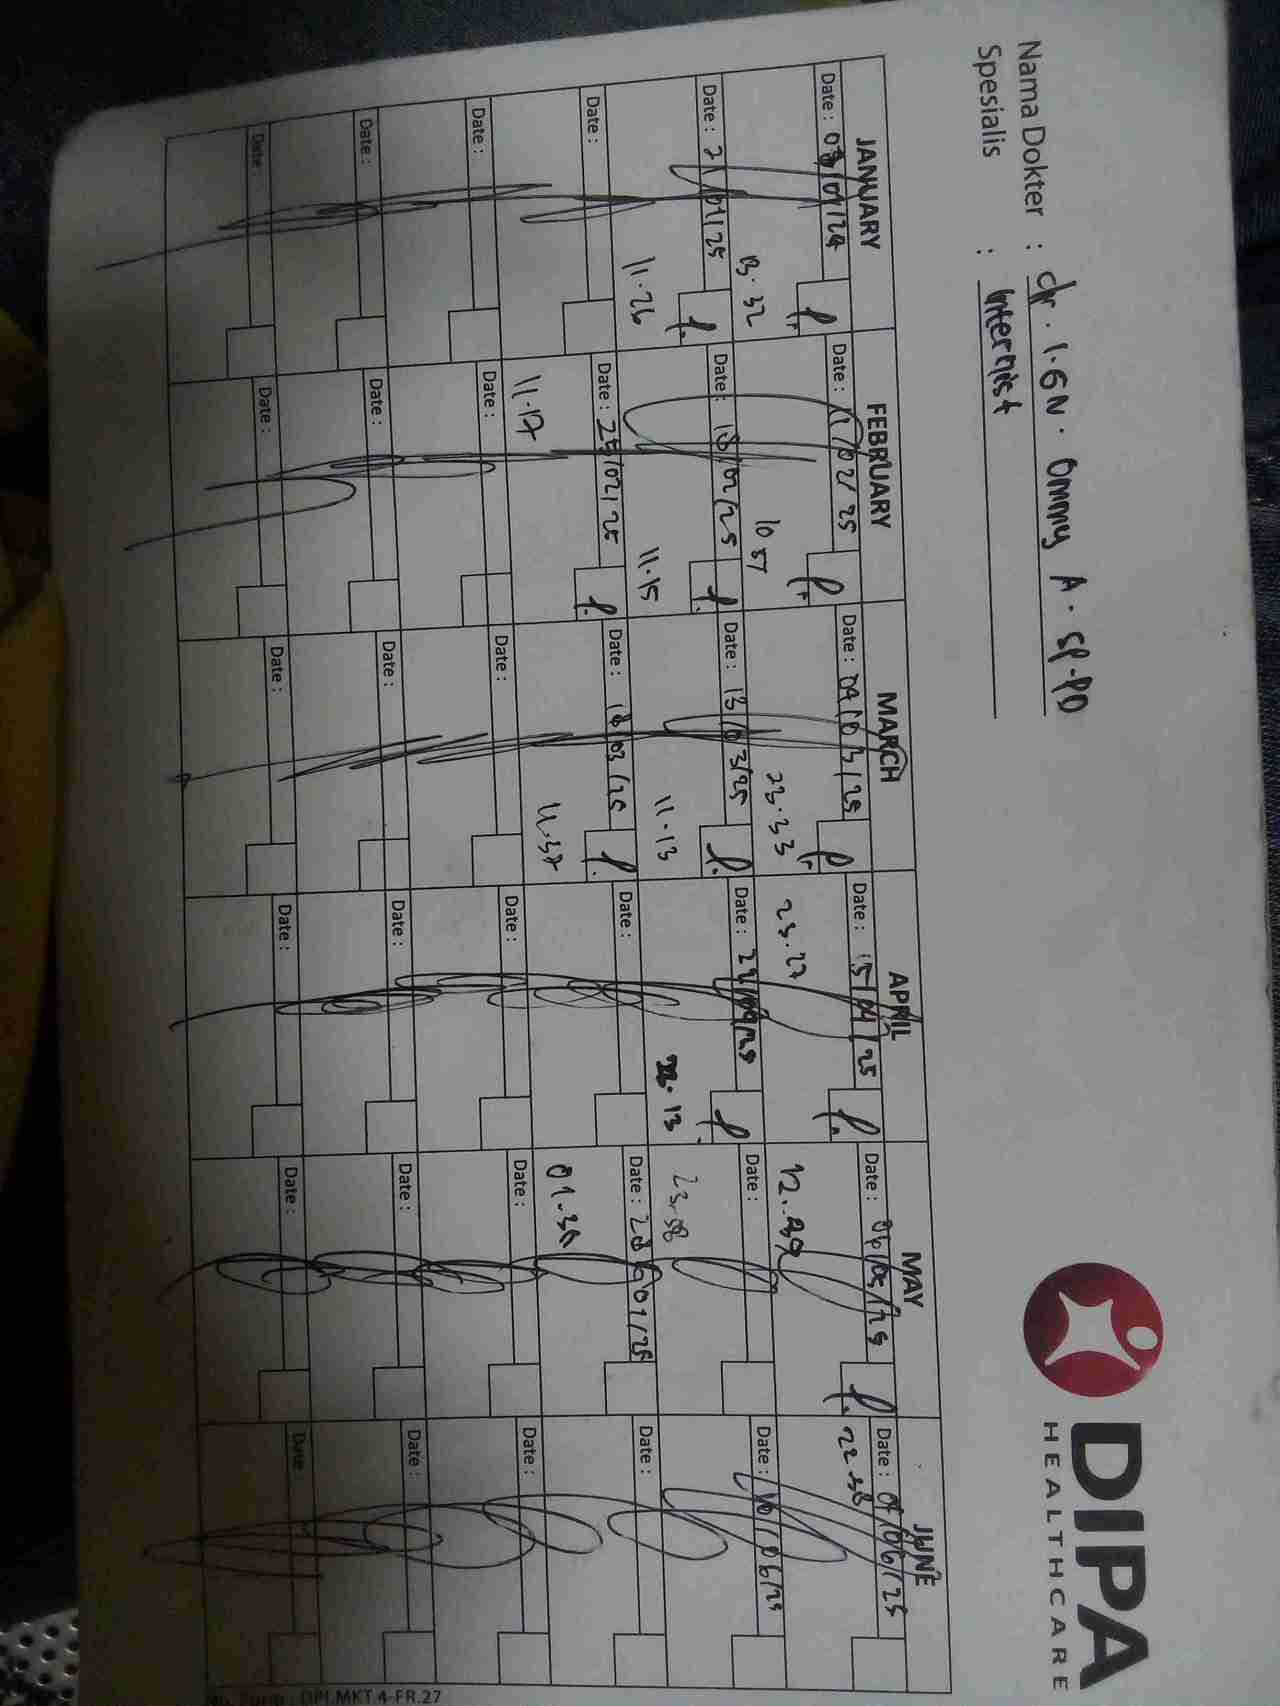 DIPA
HEALTHCARE
Nama Dokter : dr. I.GN. Ommy A. SP.PD
Spesialis : Internist
JANUARY FEBRUARY MARCH APRIL MAY JUNE
Date : Date : 11/02/25 Date : 04/03/25 Date : 15/04/25 Date : 06/05/25 Date : 06/25
13.32 10 57 23.33 23.27 12. 22.58
Date : 21/01/25 Date : 18/02/25 Date : 13/03/25 Date : 22/04/25 Date : Date : 10/06/25
11.26 11.15 11.13 13 23.58
Date : Date : 25/02/25 Date : 18/03/25 Date : Date : 28 /25 Date :
11.17 11.37 01.30
Date : Date : Date : Date : Date : Date :
Date : Date : Date : Date : Date : Date :
Date : Date : Date : Date : Date : Date :
DPI.MKT.4-FR.27